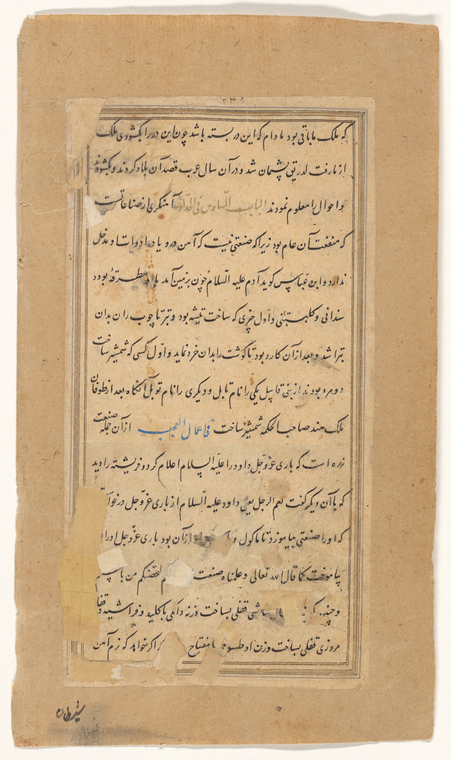 ۲۴۸
که ملک ما باقی بود مادام که این در بسته باشد چون این در را بگشودی ملک
از ما رفت لدریق پشمان شد و در آن سال عرب قصد آن بلاد کردند و بگشودند
و احوال را معلوم نمودند آهنگری از صناعاتست
که منفعت آن عام بود زیرا که صنعتی نیست که آهن درو یا در ادوات او مدخل
ندارد و ابن عباس گوید آدم علیه السلام چون بزمین آمد با او مطرقه بود و
سندانی و کلبتینی و اول چیزی که ساخت تیشه بود و تبر تا چوب را بدان
بتراشد و بعد از آن کارد بود تا گوشت را بدان خرد نماید و اول کسی که شمشیر ساخت
دو مرد بودند از بنی قابیل یکی را نام تابل و دیگری را نام توبل آنگاه بعد از طوفان
ملک هند صاحب الحکمه شمشیر ساخت فی اعمال العجیب از آن جمله صنعت
زره است که باری عز و جل داود را علیه السلام اعلام کرد دو فریشته را دید
که با آن دیگر گفت نعم الرجل داود علیه السلام از باری عز و جل درخواست
که او را صنعتی بیاموزد تا ماکول و از آن بود باری عز و جل او را
بیاموخت کما قال الله تعالی و علمناه صنعت لتحصنکم من باسکم
و چنین که قفلی بساخت وزنه دانکی با کلید و فراشیه و قفا
مروزی قفلی بساخت وزن او طسوج با مفتاح اگر خواهد که نرم آهن